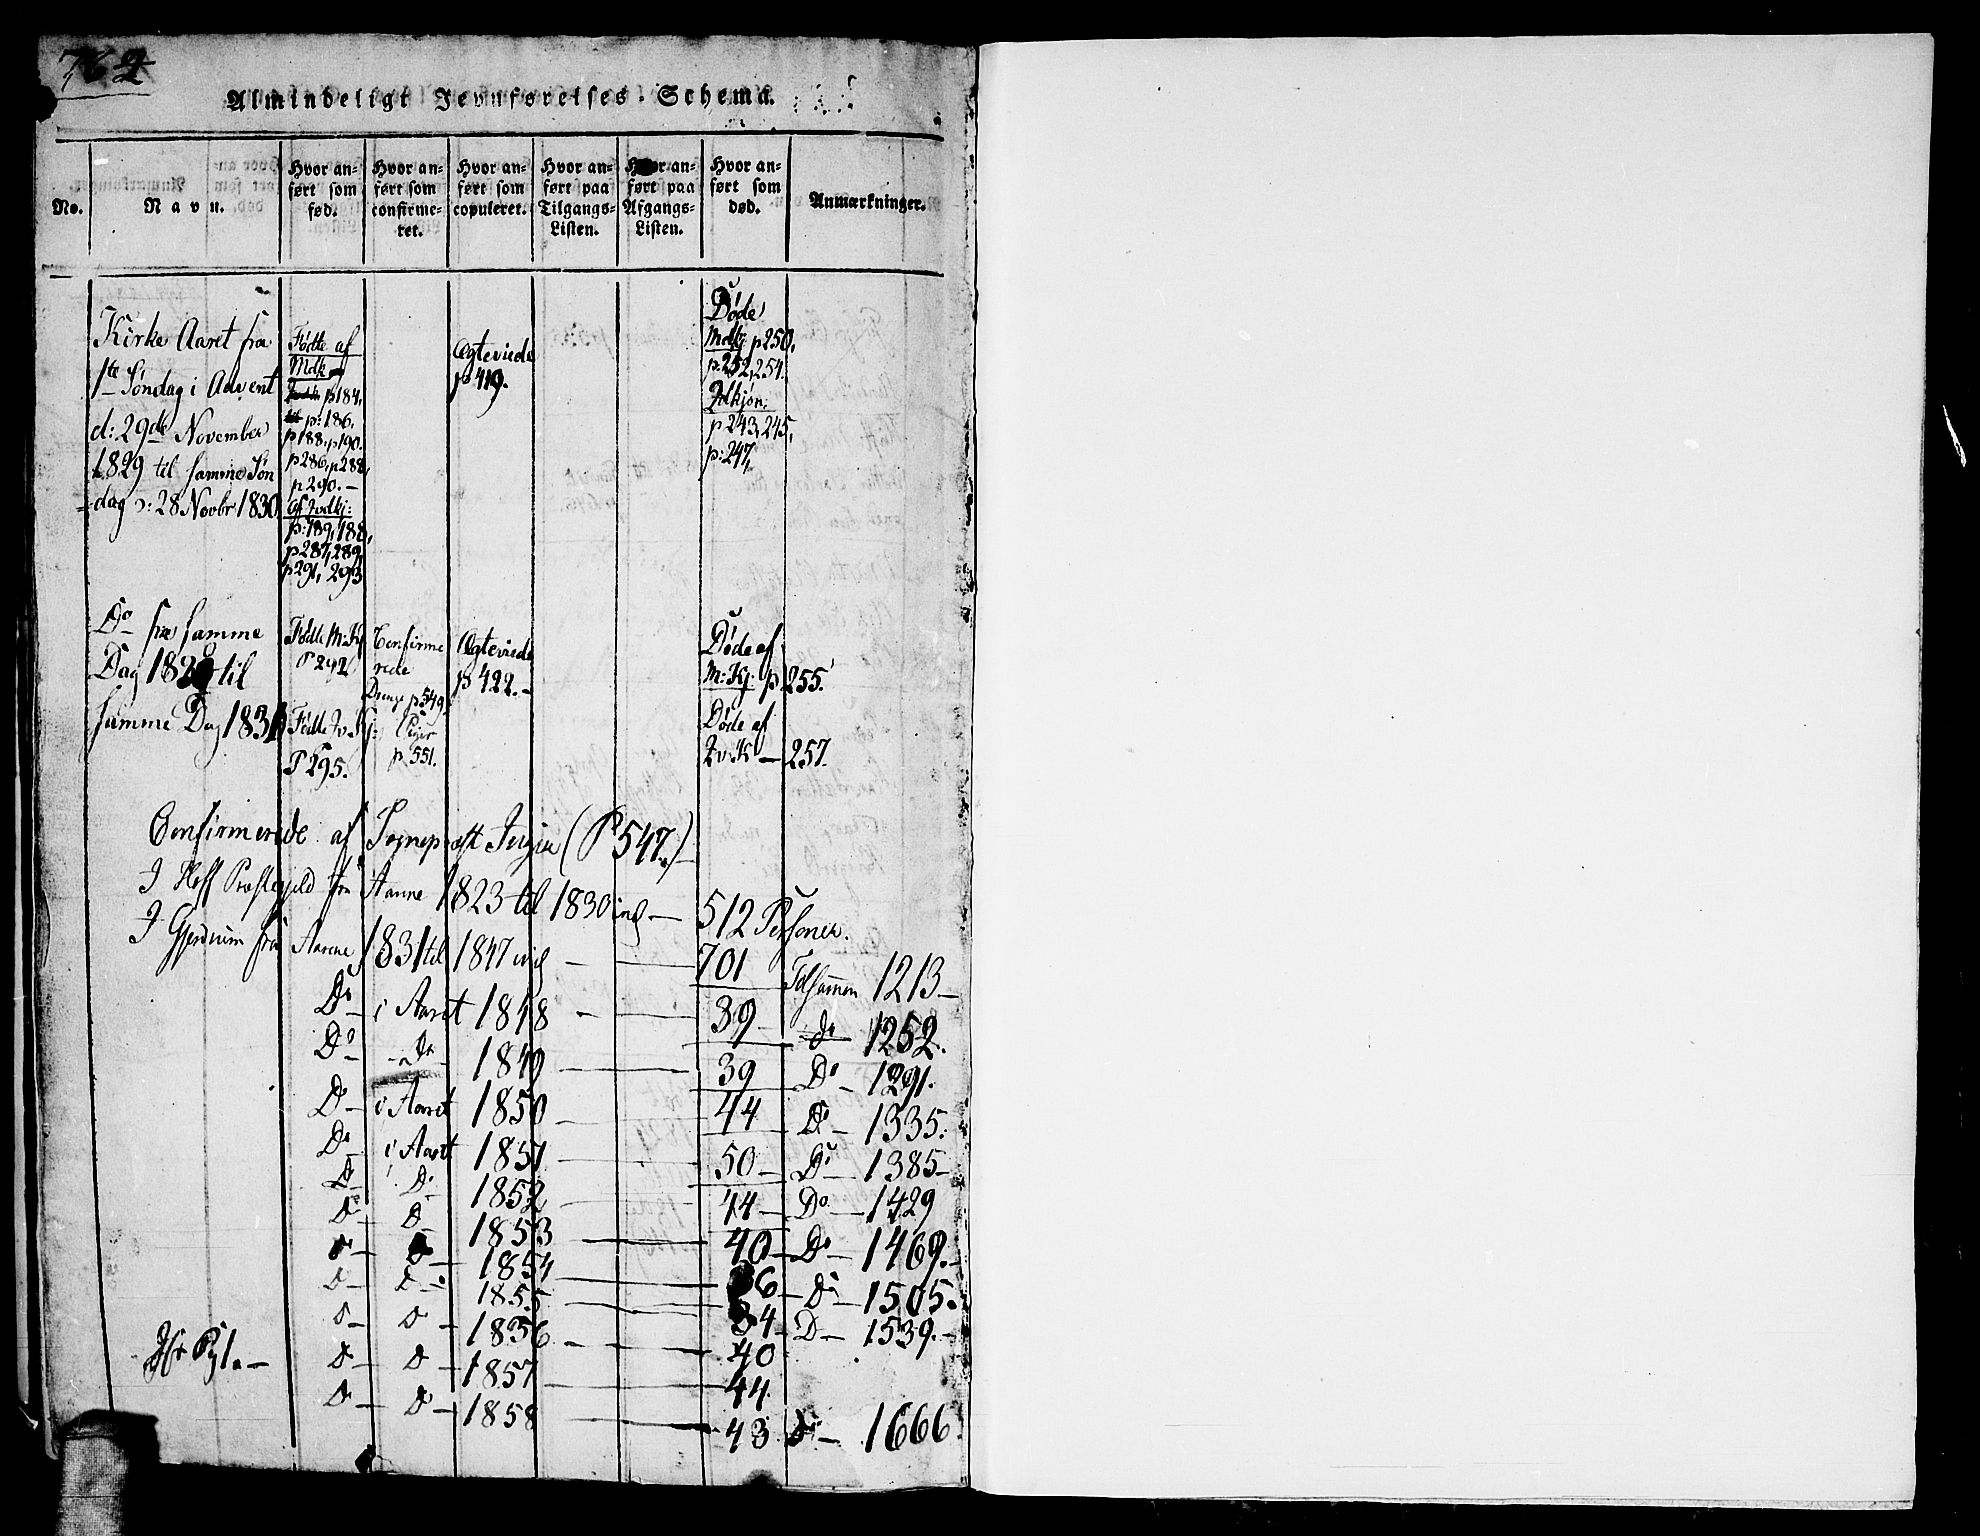 762
Almindeligt Jevnførelses-Schema.
No.
Navn.
Hvor an-
ført som
fød.
Hvor an-
ført som
confirme-
ret.
Hvor an-
ført som
copuleret.
Hvor an-
ført paa
Tilgangs-
Listen.
Hvor an-
ført paa
Afgangs-
Listen.
Hvor an-
ført som
død.
Anmærkninger.
Kirke Aaret fra
1te Søndag i Advent
d: 29de November
1829 til samme Søn
=dag d: 28 Novbr 1830
Fødte af
Mdk
p 184,
p: 186,
p 188, p 190.
p 286, p 288,
p 290.-
af Qvdkj:
p: 189, 188,
p 287, 289,
p 291, 293
Ægteviede
p 419.
Døde
Mdkj p 250,
p. 252, 254.
Qdkjøn:
p 243, 245,
p: 247,
Do fra samme
Dag 1829 til
samme Dag 1831
Fødte M: Kj
P 292
Fødte Qv. Kj:
P 295.
Confirme
rede
Drenge p 549.
Piger
p 551.
Ægteviede
p 422.-
Døde af
M: Kj: p 255.
Døde af
Qv: K — 257.
Confirmerede af Sognepræst (P 547.)
I Hoff Præstegjeld fra Aarene 1823 til 1830 incl — 512 Personer.
I Gjerdrum fra Aarene 1831 til 1847 incl — 701 Tilsammen 1213-
Do i Aaret 1848 — 39 do 1252.
Do - do 1849 — 39 Do — 1291.
Do - i Aaret 1850 — 44 Do 1335.
Do i Aaret 1851 — 50 — Do 1385-
Do Do 1852 — 44 — Do — 1429
Do Do 1853 — 40 — Do — 1469.-
Do Do 1854 — 36 — Do — 1505.
Do Do 1855 — 34 — Do — 1539.-
Do Do 1856 — 40
Do — Do — 1857 — 44
Do Do — 1858 — 43 Do — 1666.